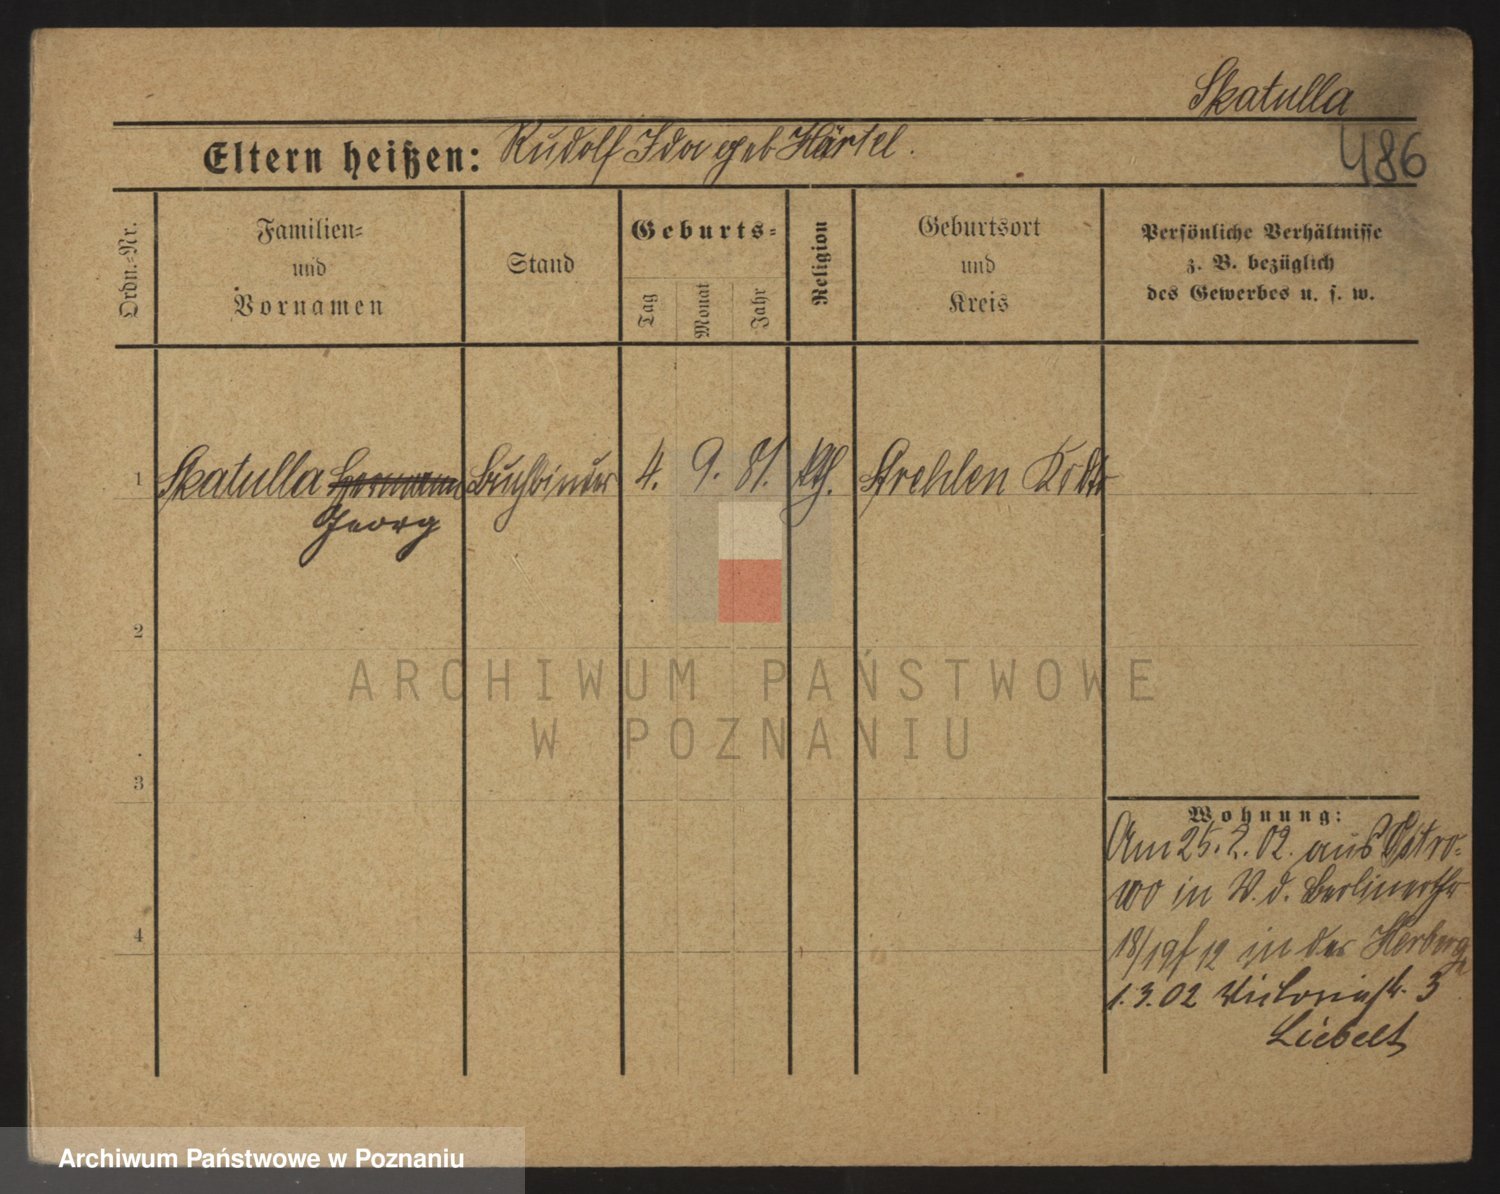 Skatulla
486
Eltern heißen: Rudolf Ida geb Härtel.
Ordn.-Nr.
Familien-
und
Vornamen
Stand
Geburts-
Tag
Monat
Jahr
Religion
Geburtsort
und
Kreis
Persönliche Verhältnisse
z. B. bezüglich
des Gewerbes u. s. w.
1 Skatulla Hermann Buchbinder 4. 9. 81. kth. Strehlen Kr
Georg
2
3
4
Wohnung:
Am 25. 2. 02. aus Ostro-
wo in V. d. Berlinerthr
18/19 f 12 in der Herberge
1.3.02 Victoriastr. 3
Liebelt
ARCHIWUM PAŃSTWOWE
W POZNANIU
Archiwum Państwowe w Poznaniu